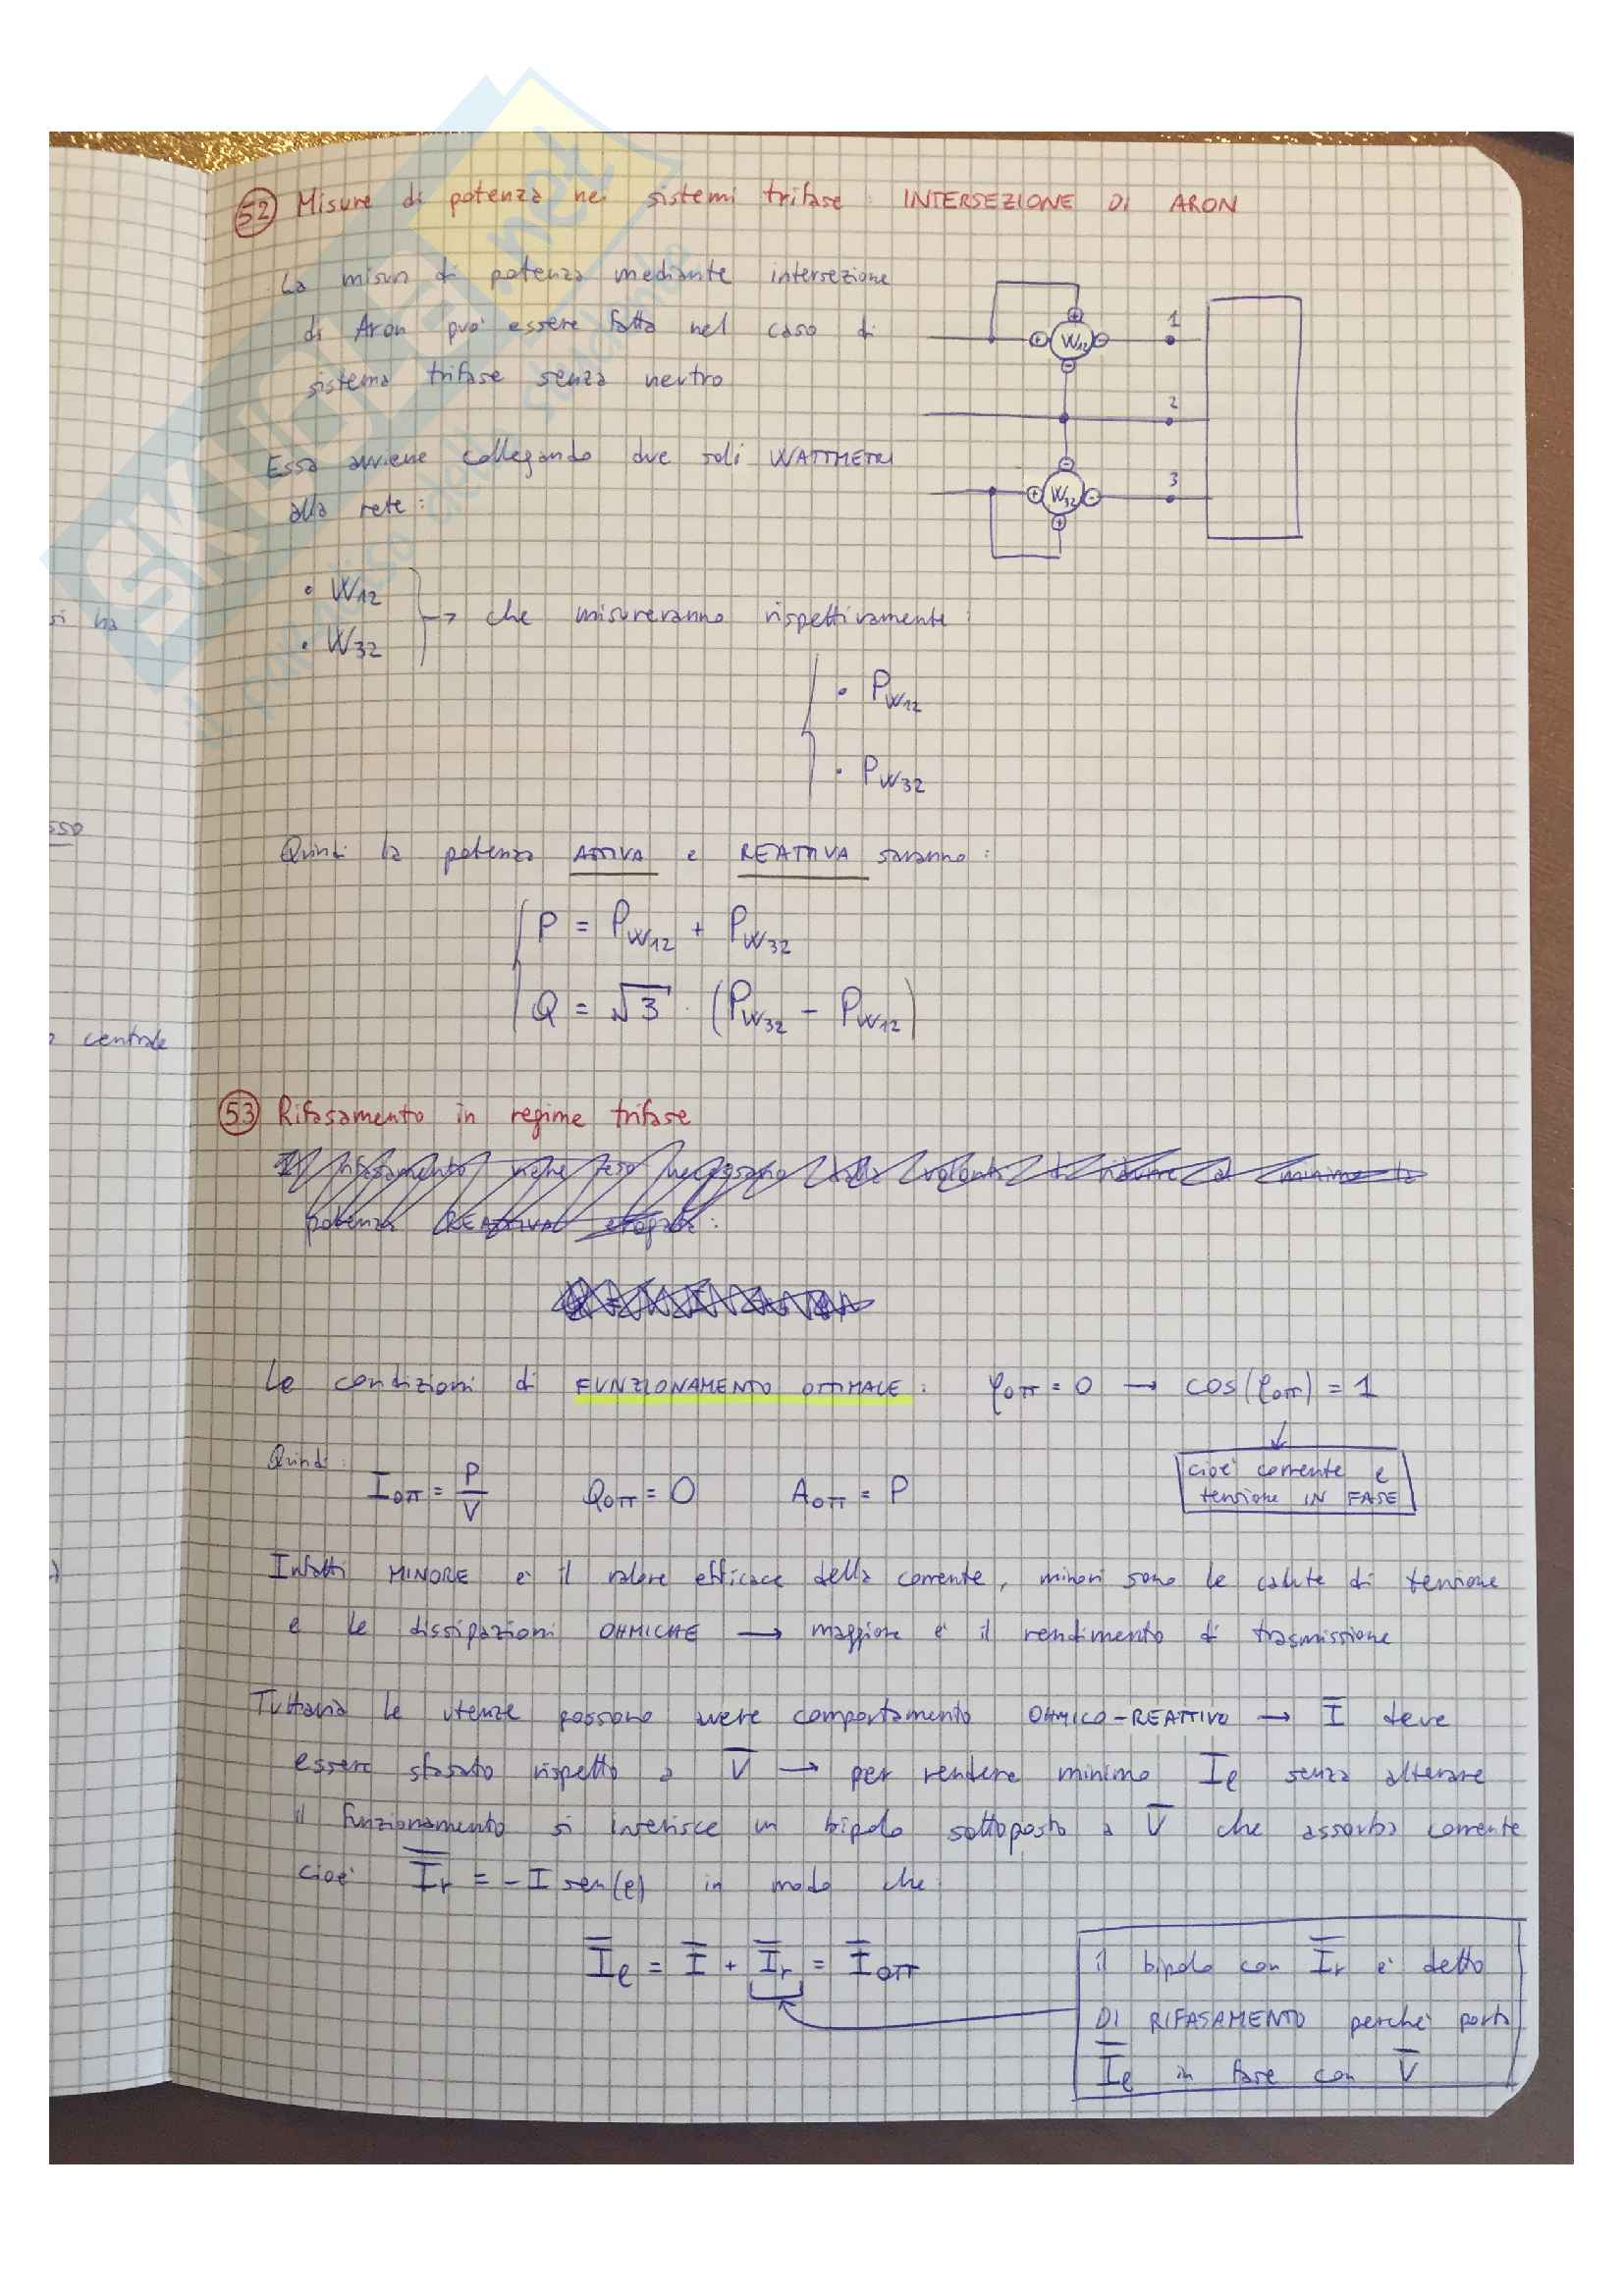 52 Misure di potenza nei sistemi trifase: INTERSEZIONE DI ARON
La misura di potenza mediante intersezione
di Aron può essere fatta nel caso di
sistema trifase senza neutro
Essa avviene collegando due soli WATTMETRI
alla rete:
W12
1
2
W32
3
• W12
• W32
→ che misureranno rispettivamente:
• PW12
• PW32
Quindi la potenza ATTIVA e REATTIVA saranno:
P = PW12 + PW32
Q = √3 · (PW32 − PW12)
53 Rifasamento in regime trifase
Le condizioni di FUNZIONAMENTO OTTIMALE: φOTT = 0 → cos(φOTT) = 1
Quindi:
IOTT = P/V QOTT = 0 AOTT = P
cioè corrente e
tensione IN FASE
Infatti MINORE è il valore efficace della corrente, minori sono le cadute di tensione
e le dissipazioni OHMICHE → maggiore è il rendimento di trasmissione
Tuttavia le utenze possono avere comportamento OHMICO-REATTIVO → I̅ deve
essere sfasato rispetto a V̅ → per rendere minimo Iℓ senza alterare
il funzionamento si inserisce un bipolo sottoposto a V̅ che assorba corrente
cioè I̅r = −I sen(φ) in modo che
I̅ℓ = I̅ + I̅r = I̅OTT
il bipolo con I̅r è detto
DI RIFASAMENTO perché porta
I̅ℓ in fase con V̅
si ha
centrale
SKUOLA.net